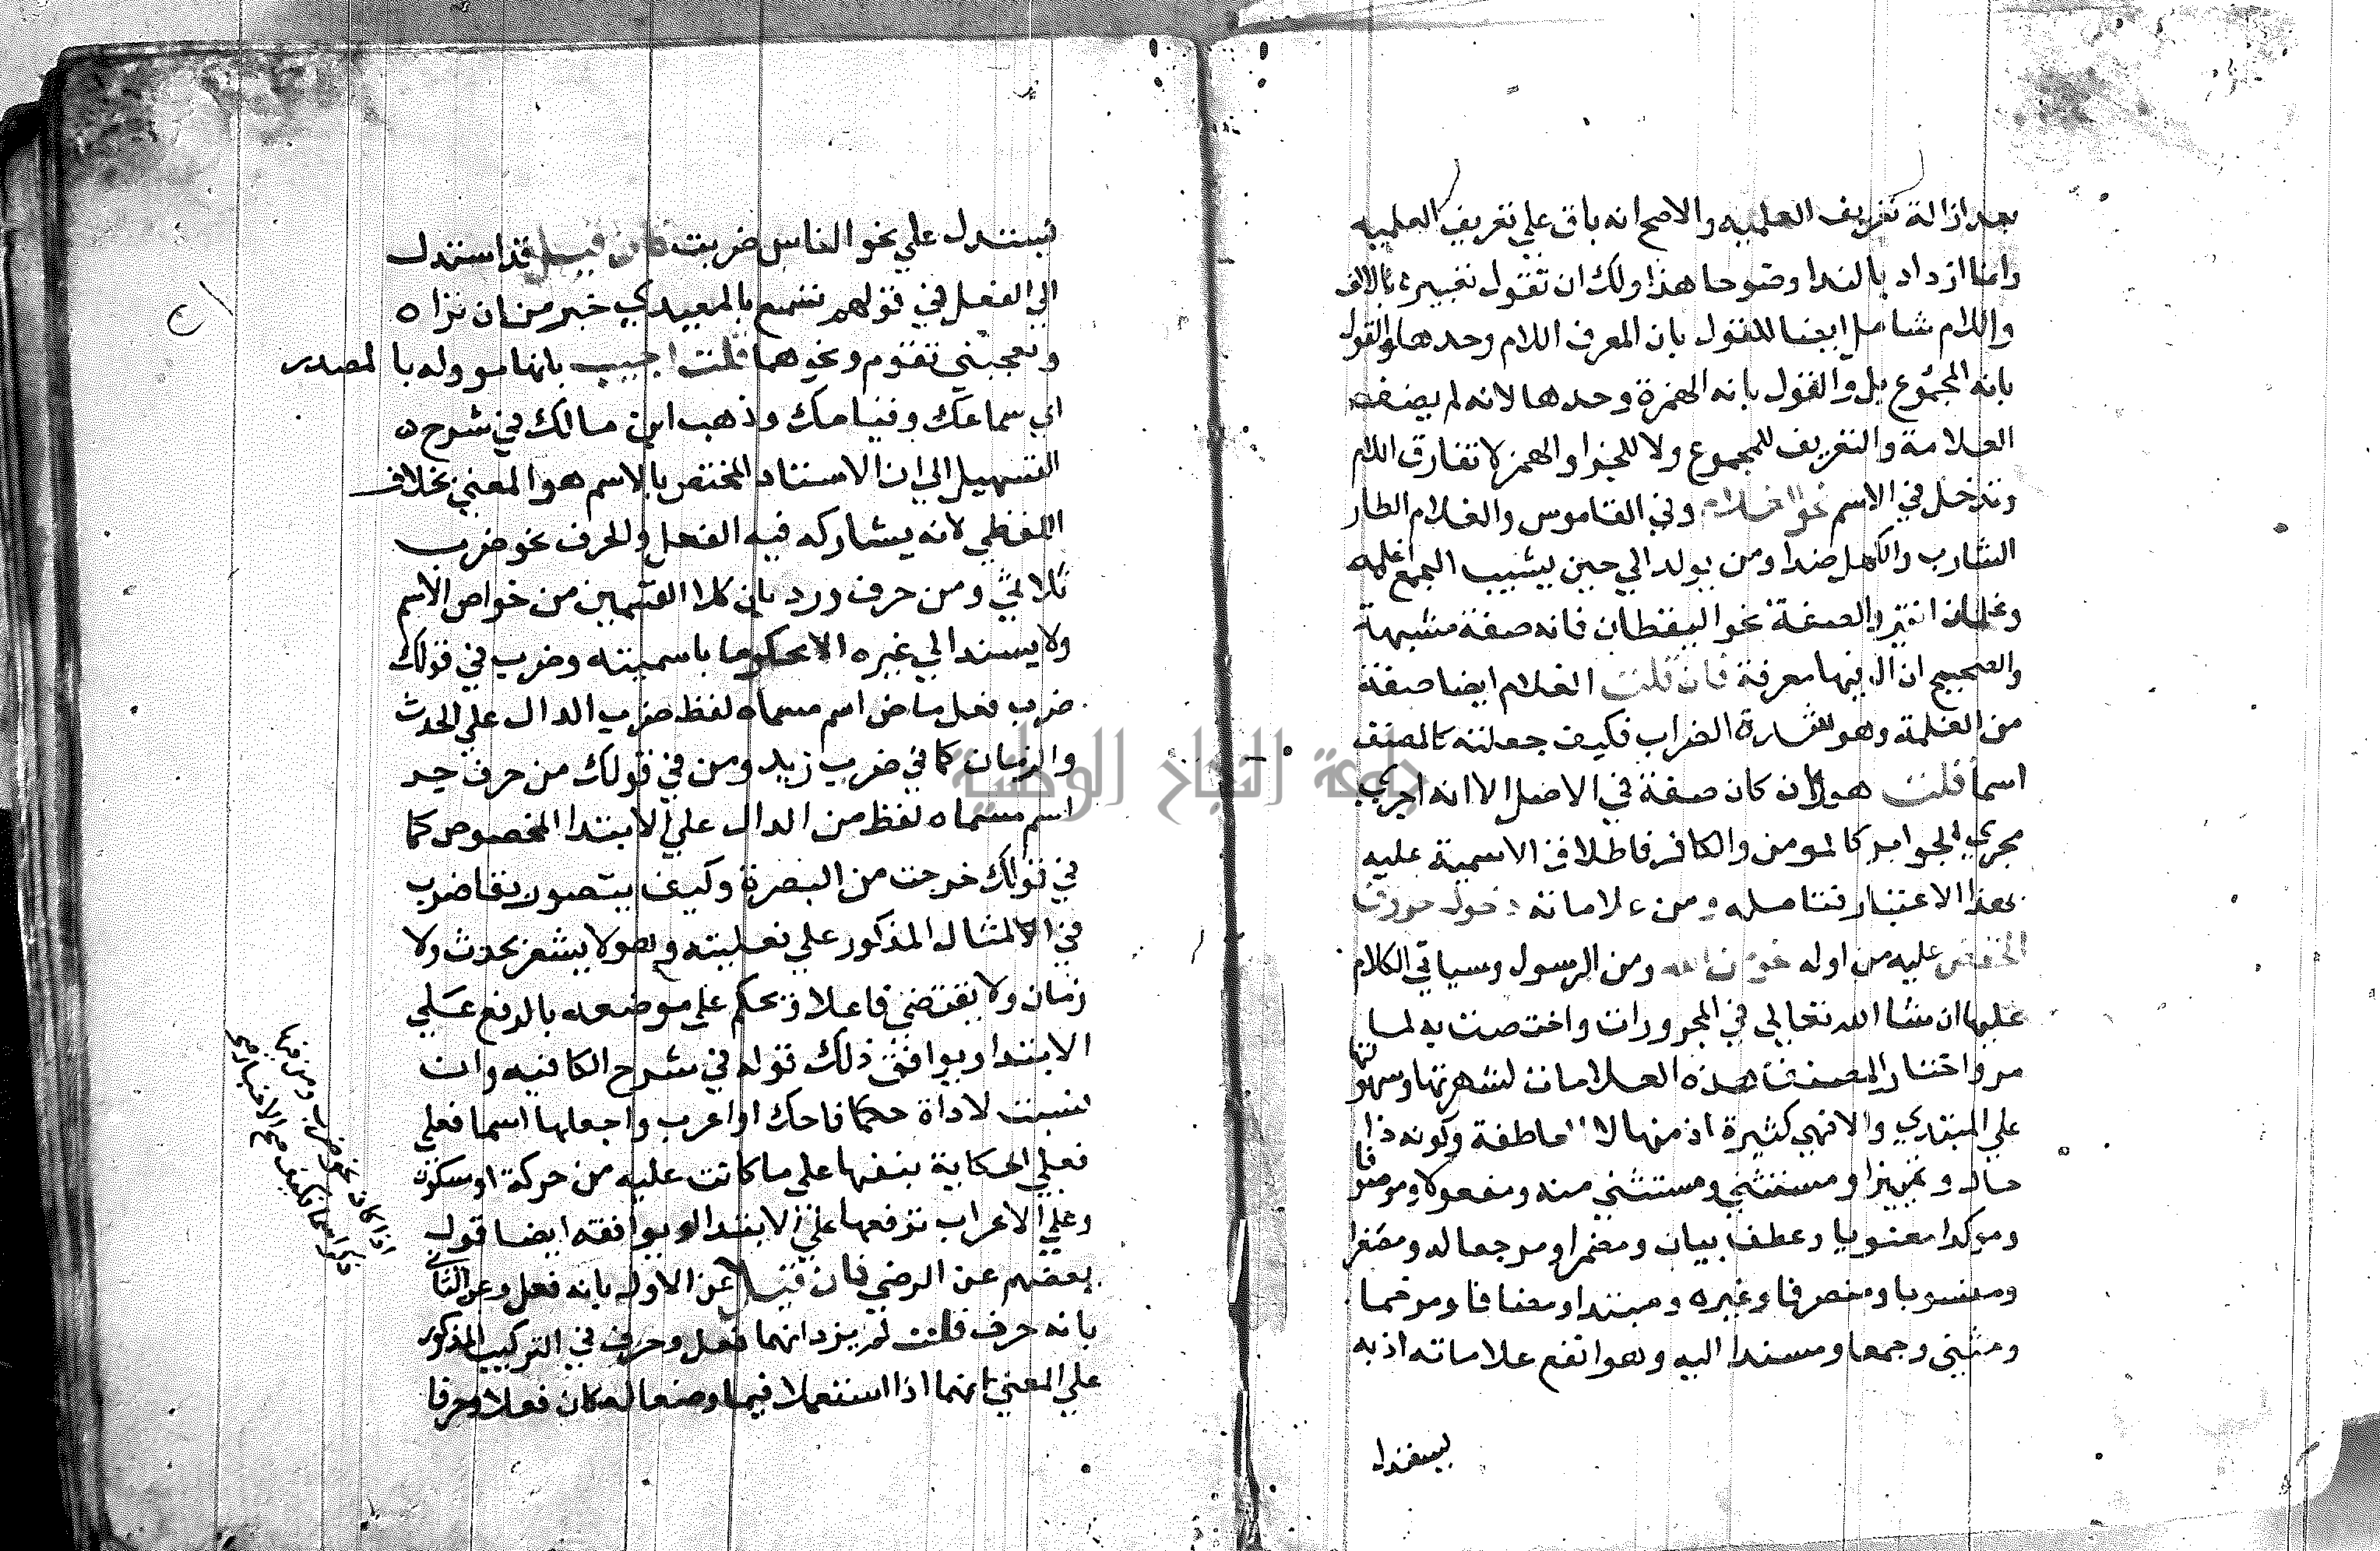 بعد ازالة تعريف العلميه والاصح انه باق علي تعريف العلميه
وانما ازداد بالندا وضوحا هذا ولك ان تقول تعبيره بالالف
واللام شامل ايضا للقول بان المعرف اللام وحدها والقول
بانه المجموع بل والقول بانه الهمزة وحدها لانه لم يضف
العلامة والتعريف للمجموع ولا للجزا والهمز لا تفارق اللام
وتدخل في الاسم نحو الغلام وفي القاموس والغلام الطار
الشارب والكهل ضدا ومن يولد الي حين يشيب الجمع اغلمه
وغلمان انتهي والصفة نحو اليقظان فانه صفة مشبهة
والصحيح ان ال فيها معرفة فان قلت الغلام ايضا صفة
من الغلمة وهو الضراب فكيف جعلته كالمصنف
اسما قلت هو وان كان صفة في الاصل الا انه اجري
مجري الجوامد كالمومن والكافر فاطلاق الاسمية عليه
بهذا الاعتبار فتامله ومن علاماته دخول حروف
الخفض عليه من اوله نحو من الله ومن الرسول وسياتي الكلام
عليها ان شا الله تعالي في المجرورات واختصت به لما
مر واختار المصنف هذه العلامات لشهرتها وسهولتها
علي المبتدي والا فهي كثيرة اذ منها لا العاطفة وكونه ذا
حال وتمييزا ومستثني ومستثني منه ومفعولا وموصوفا
وموكدا معنويا وعطف بيان ومضمرا ومرجعا له ومصغرا
ومنسوبا ومنصرفا وغيره ومبتدا ومضافا ومرخما
ومثني وجمعا ومسندا اليه وهو انفع علاماته اذ به
يستدل
يستدل علي نحو الناس ضربت فان قيل قد استدل
الي الفعل في قولهم تسمع بالمعيدي خير من ان تراه
ويعجبني تقوم ونحوهما قلت اجيب بانها موولة بالمصدر
اي سماعك وقيامك وذهب ابن مالك في شرح
التسهيل الي ان الاسناد المختص بالاسم هو المعني بخلاف
اللفظي لانه يشاركه فيه الفعل والحرف نحو ضرب
ثلاثي ومن حرف ورد بان كلا القسمين من خواص الاسم
ولا يسند الي غيره الا محكوما باسميته وضرب في قولك
ضرب فعل ماض اسم مسماه لفظ ضرب الدال علي الحدث
والزمان كما في ضرب زيد ومن في قولك من حرف جر
اسم مسماه لفظ من الدال علي الابتدا المخصوص كما
في قولك خرجت من البصرة وكيف يتصور بقا ضرب
في المثال المذكور علي فعليته وهو لا يشعر بحدث ولا
زمان ولا يقتضي فاعلا ويحكم علي موضعه بالرفع علي
الابتدا ويوافق ذلك قوله في شرح الكافيه وان
نسبت لاداة حكما فاحك او اعرب واجعلها اسما فعلي
فعلي الحكاية بنفها علي ما كانت عليه من حركة او سكون
وعلي الاعراب ترفعها علي الابتدا ويوافقه ايضا قول
بعضهم عن الرضي فان قيل عن الاول بانه فعل وعن الثاني
بانه حرف قلت لم يزد انهما فعل وحرف في التركيب المذكور
علي المعني انهما اذا استعملا فيما وضعا له كان فعلا وحرفا
جامعة النجاح الوطنية